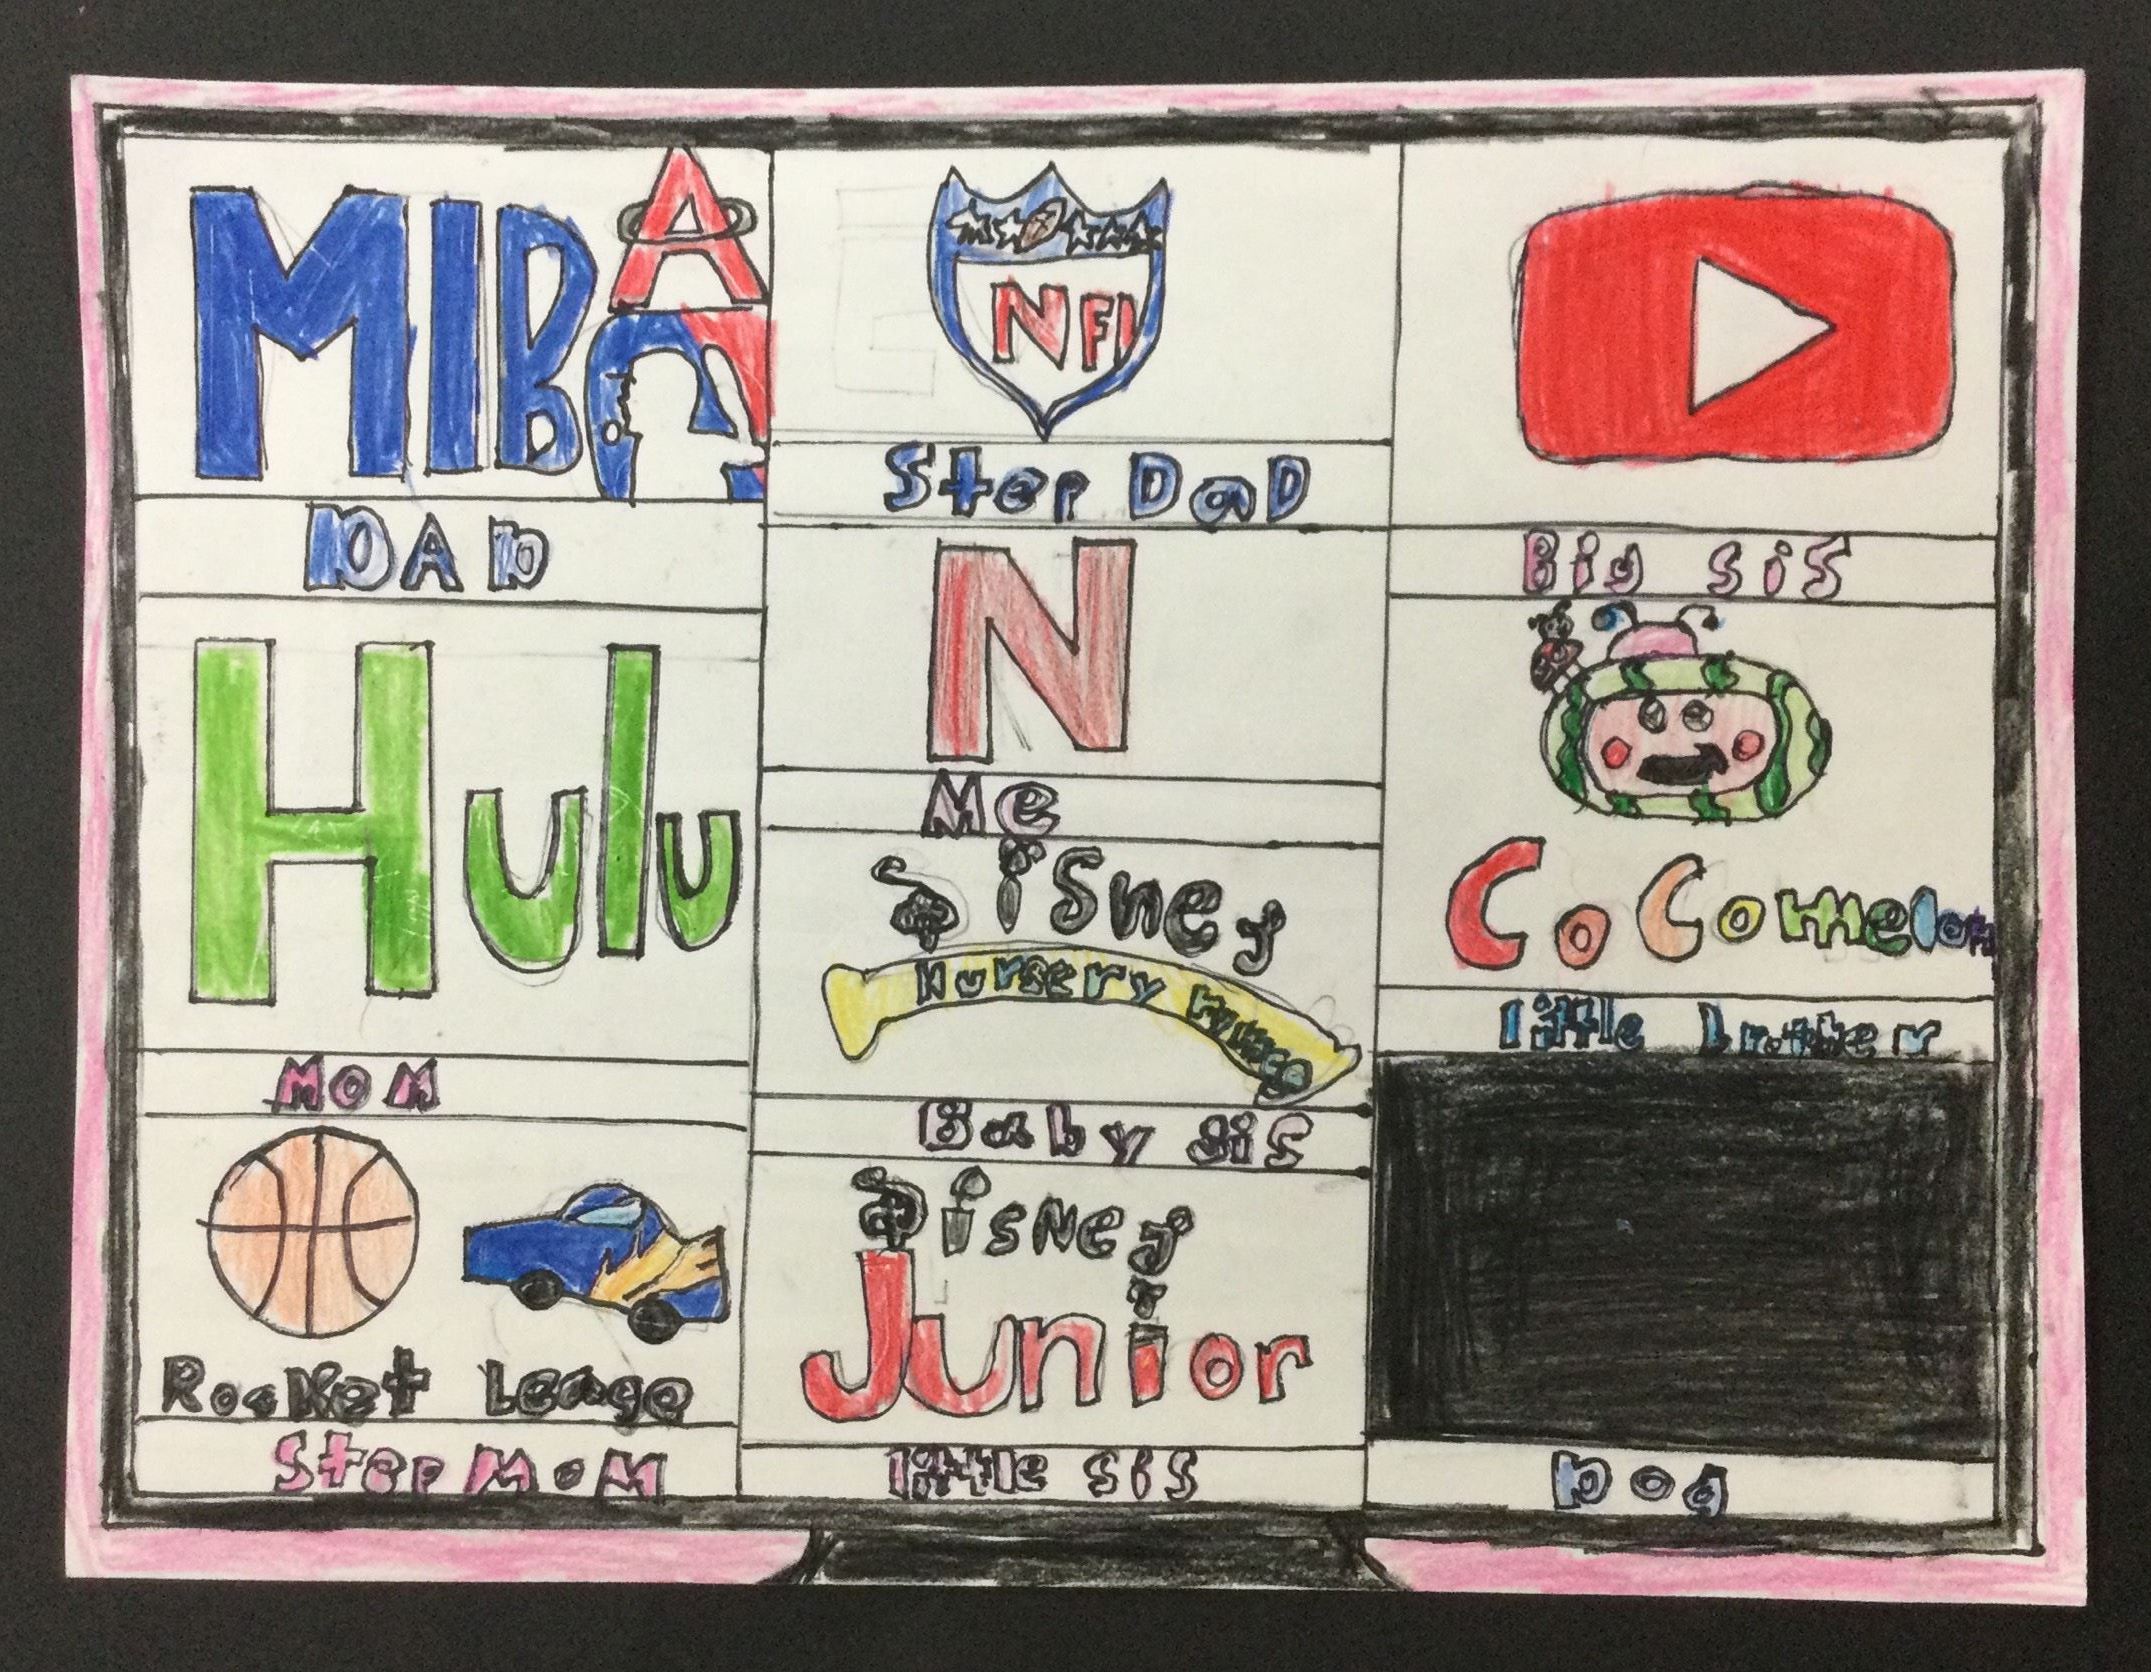 MlB A
DAD
Hulu
MOM
Rocket Leage
Step MoM
NFl
Step DaD
N
Me
Disney
Nursery
Baby sis
Disney
Junior
little sis
Big sis
CoComelon
little brother
Dog